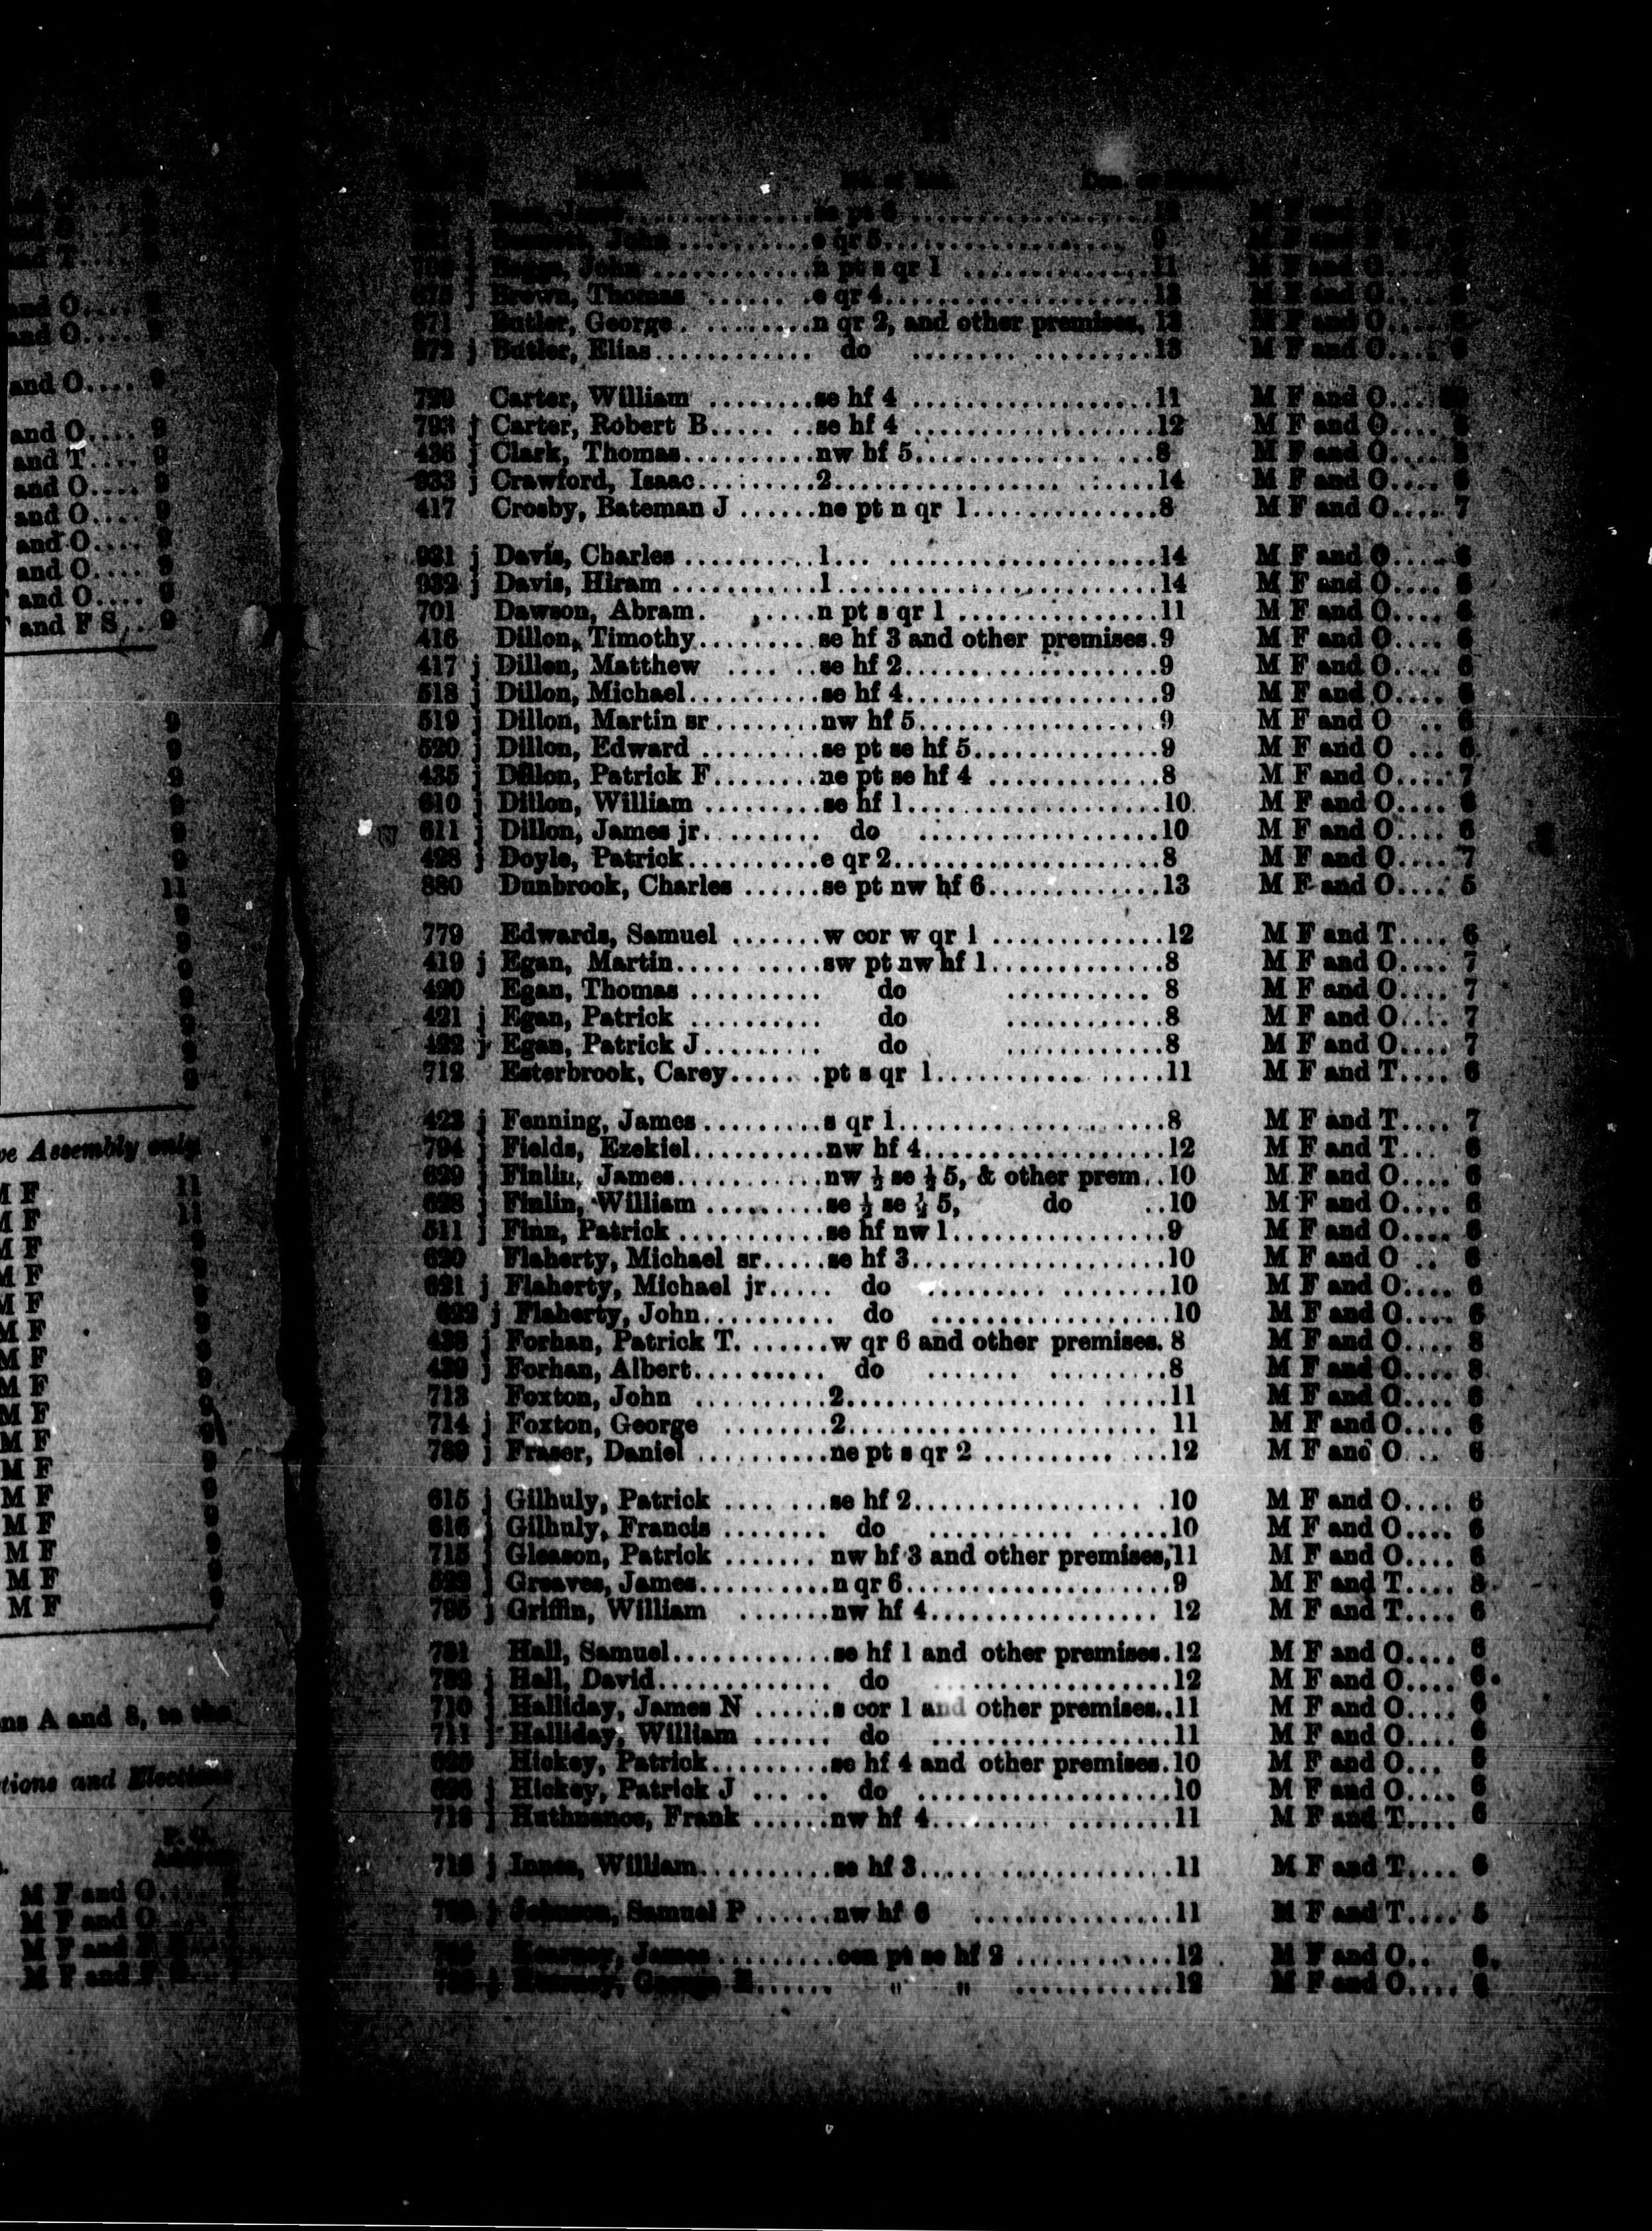 and O....
and O....
and O.... 9
and O.... 9
and T.... 9
and O.... 9
and O.... 9
and O.... 9
and O.... 9
and O.... 9
and F S... 9
9
9
9
9
9
9
11
9
9
9
9
9
9
9
ve Assembly only
M F 11
M F 11
M F 9
M F 9
M F 9
M F 9
M F 9
M F 9
M F 9
M F 9
M F 9
M F 9
M F 9
M F 9
M F 9
M F 9
ns A and 8, to the
tions and Elections
P. O.
M F and O
M F and O
M F and
M F and
se pt 6
John e qr 5 9
Boggs, John n pt s qr 1 11
j Brown, Thomas e qr 4 13 M F and O
871 Butler, George n qr 2, and other premises, 13 M F and O
872 j Butler, Elias do 13 M F and O
720 Carter, William se hf 4 11 M F and O
793 j Carter, Robert B se hf 4 12 M F and O
436 j Clark, Thomas nw hf 5 8 M F and O
933 j Crawford, Isaac 2 14 M F and O.... 6
417 Crosby, Bateman J ne pt n qr 1 8 M F and O.... 7
931 j Davis, Charles 1 14 M F and O.... 6
932 j Davis, Hiram 1 14 M F and O.... 6
701 Dawson, Abram n pt s qr 1 11 M F and O.... 6
416 Dillon, Timothy se hf 3 and other premises. 9 M F and O.... 6
417 j Dillon, Matthew se hf 2 9 M F and O.... 6
518 j Dillon, Michael se hf 4 9 M F and O.... 6
519 j Dillon, Martin sr nw hf 5 9 M F and O .. 6
520 j Dillon, Edward se pt se hf 5 9 M F and O ... 6
435 j Dillon, Patrick F ne pt se hf 4 8 M F and O.... 7
610 j Dillon, William se hf 1 10 M F and O.... 6
611 j Dillon, James jr do 10 M F and O.... 6
428 j Doyle, Patrick e qr 2 8 M F and O.... 7
880 Dunbrook, Charles se pt nw hf 6 13 M F and O.... 5
779 Edwards, Samuel w cor w qr 1 12 M F and T.... 6
419 j Egan, Martin sw pt nw hf 1 8 M F and O.... 7
420 Egan, Thomas do 8 M F and O.... 7
421 j Egan, Patrick do 8 M F and O.... 7
422 j Egan, Patrick J do 8 M F and O.... 7
712 Esterbrook, Carey pt s qr 1 11 M F and T.... 6
423 j Fenning, James s qr 1 8 M F and T.... 7
794 j Fields, Ezekiel nw hf 4 12 M F and T... 6
629 j Finlin, James nw ½ se ½ 5, & other prem.. 10 M F and O.... 6
628 j Finlin, William se ½ se ½ 5, do 10 M F and O.... 6
511 j Finn, Patrick se hf nw 1 9 M F and O.... 6
620 Flaherty, Michael sr se hf 3 10 M F and O .. 6
621 j Flaherty, Michael jr do 10 M F and O.... 6
622 j Flaherty, John do 10 M F and O.... 6
438 j Forhan, Patrick T. w qr 6 and other premises. 8 M F and O.... 8
439 j Forhan, Albert do 8 M F and O.... 8
713 Foxton, John 2 11 M F and O.... 6
714 j Foxton, George 2 11 M F and O.... 6
789 j Fraser, Daniel ne pt s qr 2 12 M F and O... 6
615 j Gilhuly, Patrick se hf 2 10 M F and O.... 6
616 j Gilhuly, Francis do 10 M F and O.... 6
715 j Gleason, Patrick nw hf 3 and other premises, 11 M F and O.... 6
522 j Greaves, James n qr 6 9 M F and T.... 8
795 j Griffin, William nw hf 4 12 M F and T.... 6
781 Hall, Samuel se hf 1 and other premises. 12 M F and O.... 6
782 j Hall, David do 12 M F and O.... 6
710 j Halliday, James N s cor 1 and other premises.. 11 M F and O.... 6
711 j Halliday, William do 11 M F and O.... 6
625 Hickey, Patrick se hf 4 and other premises. 10 M F and O... 6
626 j Hickey, Patrick J do 10 M F and O.... 6
718 j Huthnance, Frank nw hf 4 11 M F and T.... 6
716 j Innes, William se hf 3 11 M F and T.... 6
j Johnson, Samuel P nw hf 6 11 M F and T.... 5
James cen pt se hf 2 12 M F and O.. 6
j George " " 12 M F and O.... 6